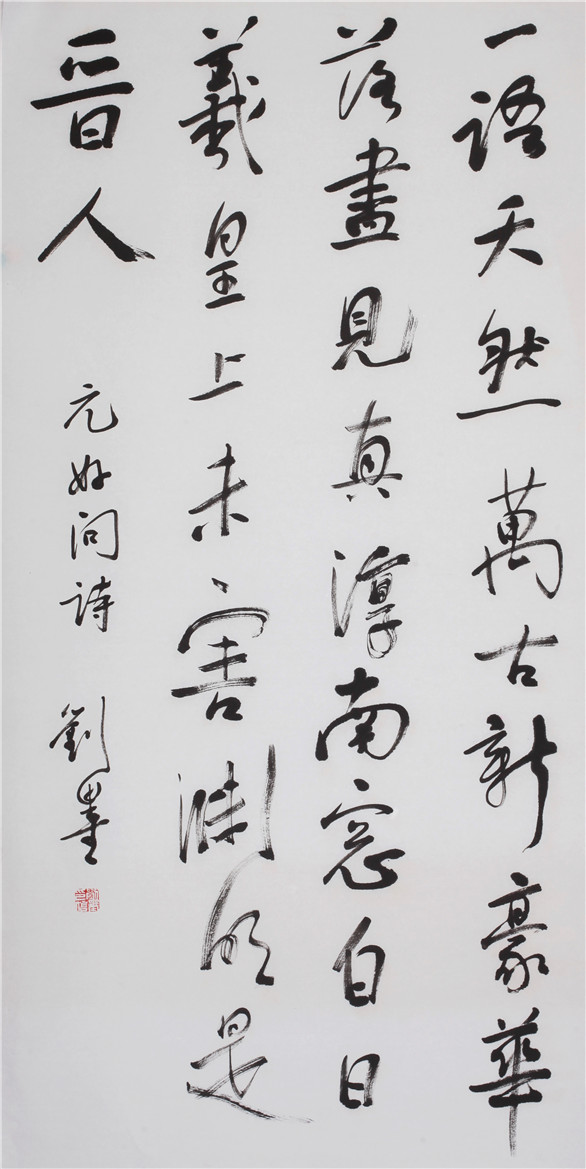 一語天然萬古新豪華
落盡見真淳南窓白日
羲皇上未害淵明是
晋人
元好問詩 劉墨